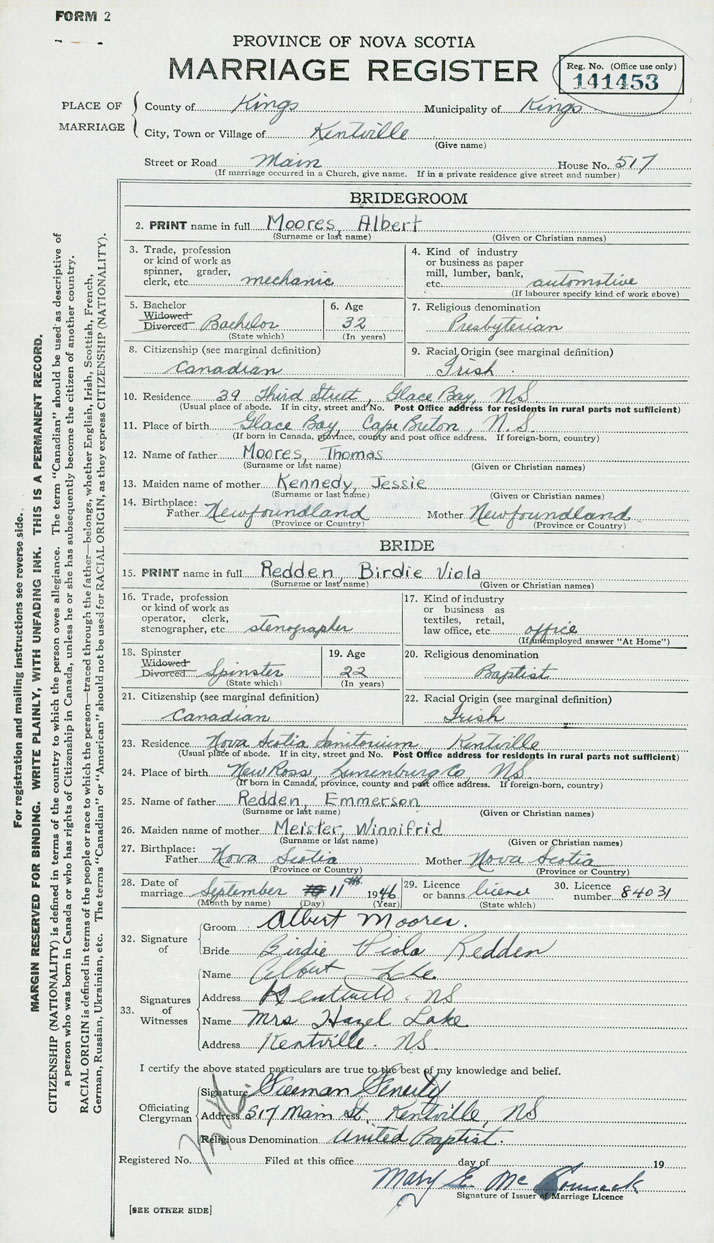 FORM 2
PROVINCE OF NOVA SCOTIA
MARRIAGE REGISTER
Reg. No. (Office use only)
141453
PLACE OF MARRIAGE
County of Kings Municipality of Kings
City, Town or Village of Kentville
(Give name)
Street or Road Main House No. 517
(If marriage occurred in a Church, give name. If in a private residence give street and number)
BRIDEGROOM
2. PRINT name in full Moores, Albert
(Surname or last name) (Given or Christian names)
3. Trade, profession or kind of work as spinner, grader, clerk, etc. mechanic
4. Kind of industry or business as paper mill, lumber, bank, etc. automotive
(If labourer specify kind of work above)
5. Bachelor Widowed Divorced Bachelor
(State which)
6. Age 32
(In years)
7. Religious denomination Presbyterian
8. Citizenship (see marginal definition) Canadian
9. Racial Origin (see marginal definition) Irish
10. Residence 39 Third Street, Glace Bay, N.S.
(Usual place of abode. If in city, street and No. Post Office address for residents in rural parts not sufficient)
11. Place of birth Glace Bay, Cape Breton, N.S.
(If born in Canada, province, county and post office address. If foreign-born, country)
12. Name of father Moores, Thomas
(Surname or last name) (Given or Christian names)
13. Maiden name of mother Kennedy, Jessie
(Surname or last name) (Given or Christian names)
14. Birthplace: Father Newfoundland Mother Newfoundland
(Province or Country) (Province or Country)
BRIDE
15. PRINT name in full Redden, Birdie Viola
(Surname or last name) (Given or Christian names)
16. Trade, profession or kind of work as operator, clerk, stenographer, etc. stenographer
17. Kind of industry or business as textiles, retail, law office, etc. office
(If unemployed answer "At Home")
18. Spinster Widowed Divorced Spinster
(State which)
19. Age 22
(In years)
20. Religious denomination Baptist
21. Citizenship (see marginal definition) Canadian
22. Racial Origin (see marginal definition) Irish
23. Residence Nova Scotia Sanitorium, Kentville
(Usual place of abode. If in city, street and No. Post Office address for residents in rural parts not sufficient)
24. Place of birth New Ross, Lunenburg Co, N.S.
(If born in Canada, province, county and post office address. If foreign-born, country)
25. Name of father Redden, Emmerson
(Surname or last name) (Given or Christian names)
26. Maiden name of mother Meister, Winnifrid
(Surname or last name) (Given or Christian names)
27. Birthplace: Father Nova Scotia Mother Nova Scotia
(Province or Country) (Province or Country)
28. Date of marriage September 11th 1946
(Month by name) (Day) (Year)
29. Licence or banns license
(State which)
30. Licence number 84031
32. Signature of
Groom Albert Moores.
Bride Birdie Viola Redden
33. Signatures of Witnesses
Name Albert
Address Kentville NS
Name Mrs Hazel Lake
Address Kentville. NS
I certify the above stated particulars are true to the best of my knowledge and belief.
Officiating Clergyman
Signature Freeman Fenerty
Address 517 Main St, Kentville, NS
Religious Denomination United Baptist.
Registered No. Filed at this office day of 19
Mary E. McCormick
Signature of Issuer of Marriage Licence
[SEE OTHER SIDE]
For registration and mailing instructions see reverse side.
MARGIN RESERVED FOR BINDING. WRITE PLAINLY, WITH UNFADING INK. THIS IS A PERMANENT RECORD.
CITIZENSHIP (NATIONALITY) is defined in terms of the country to which the person owes allegiance. The term "Canadian" should be used as descriptive of
a person who was born in Canada or who has rights of Citizenship in Canada, unless he or she has subsequently become the citizen of another country.
RACIAL ORIGIN is defined in terms of the people or race to which the person—traced through the father—belongs, whether English, Irish, Scottish, French,
German, Russian, Ukrainian, etc. The terms "Canadian" or "American" should not be used for RACIAL ORIGIN, as they express CITIZENSHIP (NATIONALITY).